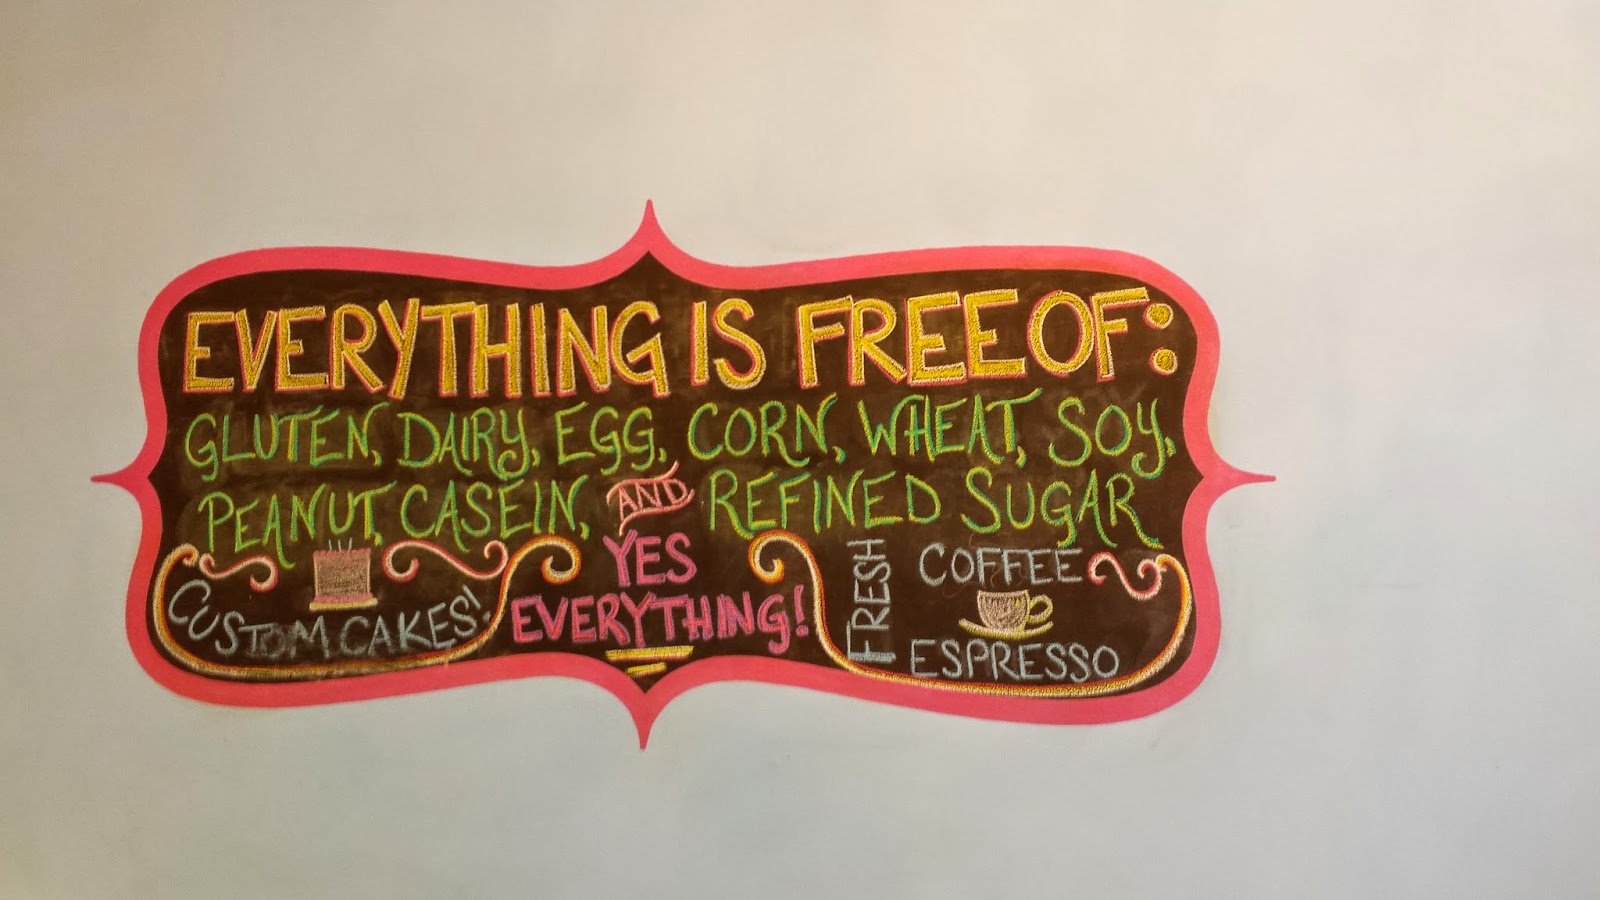 EVERYTHING IS FREE OF:
GLUTEN, DAIRY, EGG, CORN, WHEAT, SOY,
PEANUT, CASEIN, AND REFINED SUGAR
YES
EVERYTHING!
CUSTOM CAKES!
FRESH
COFFEE
ESPRESSO